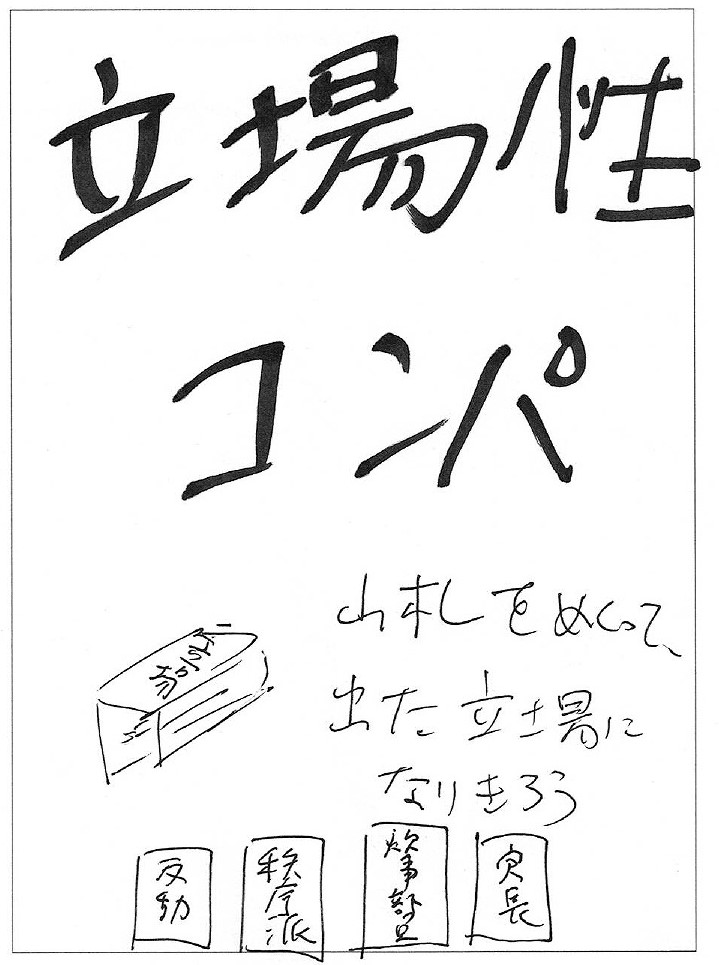 立場性
コンパ
山札をめくって、
出た立場に
なりきろう
反動
秩序派
炊事部員